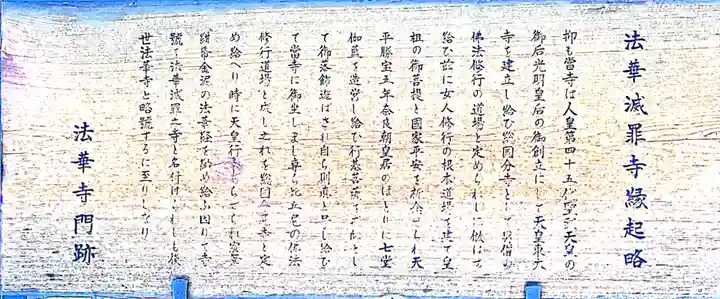 法華滅罪寺縁起略
抑も當寺は人皇第四十五代聖武天皇の
御后光明皇后の御創立にして天皇東大
寺を建立し給ひ総国分寺として男僧の
佛法修行の道場と定められしに倣はせ
給ひ茲に女人修行の根本道場を建て皇
祖の御菩提と國家平安を祈念せられ天
平勝宝五年奈良朝皇居のほとりに七堂
伽藍を造営し給ひ行基菩薩を
て御落飾遊ばされ自ら則真と号し給ひ
て當寺に御坐しまし専ら比丘尼の佛法
修行道場と成し之れを総国分尼寺と定
め給へり時に天皇行
紺帋金泥の法華経を納め給ふ因りて寺
號を法華滅罪之寺と名付けられしも後
世法華寺と略號するに至りしなり
法華寺門跡